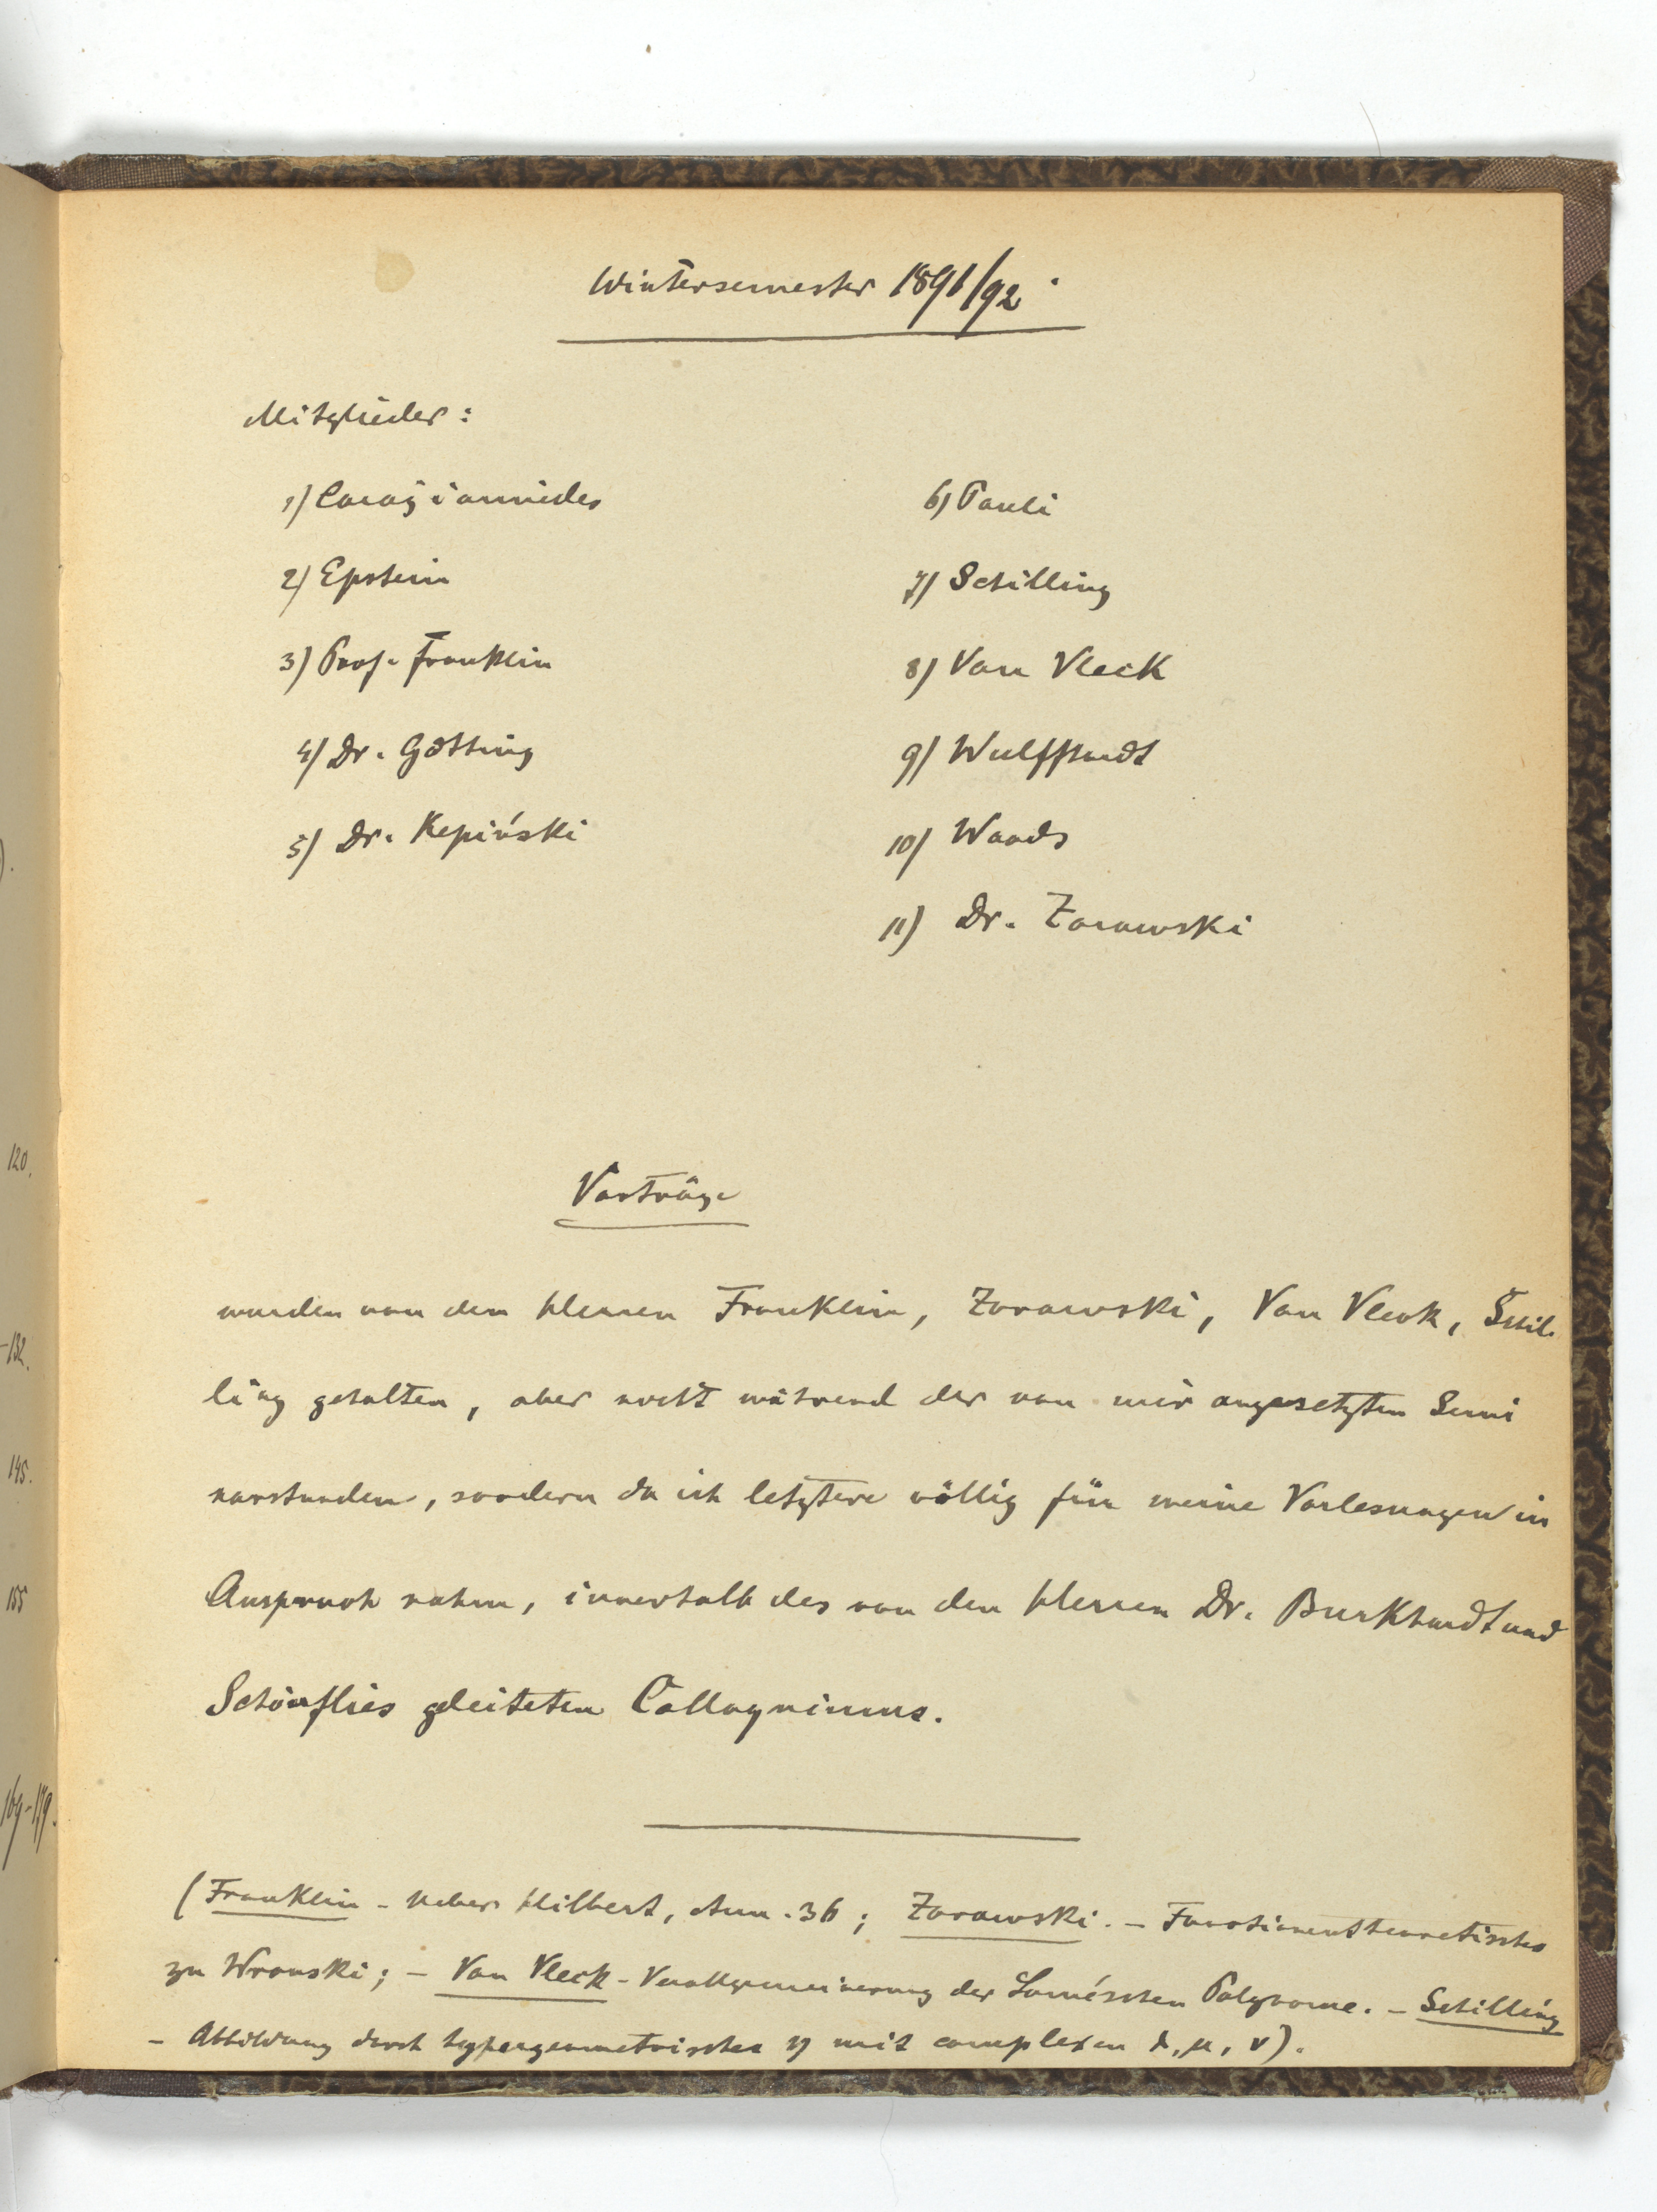 Wintersemester 1891/92.
Mitglieder:
1) Caragiannides
2) Epstein
3) Prof. Franklin
4) Dr. Götting
5) Dr. Kepiński
6) Pauli
7) Schilling
8) Van Vleck
9) Wulffhardt
10) Woods
11) Dr. Zorawski
Vorträge
wurden von den Herren Franklin, Zorawski, Van Vleck, Schil-
ling gehalten, aber nicht während der von mir angesetzten Semi
narstunden, sondern da ich letztere völlig für meine Vorlesungen in
Anspruch nahm, innerhalb des von den Herren Dr. Burkhardt und
Schönflies geleiteten Colloquiums.
(Franklin - Ueber Hilbert, Ann. 36; Zorawski. - Functionentheoretisches
zu Wronski; - Van Vleck - Verallgemeinerung der Laméschen Polynome. - Schilling
- Abbildung durch hypergeometrisches η mit complexen λ, μ, ν).
120.
-132.
145.
155
169-179.